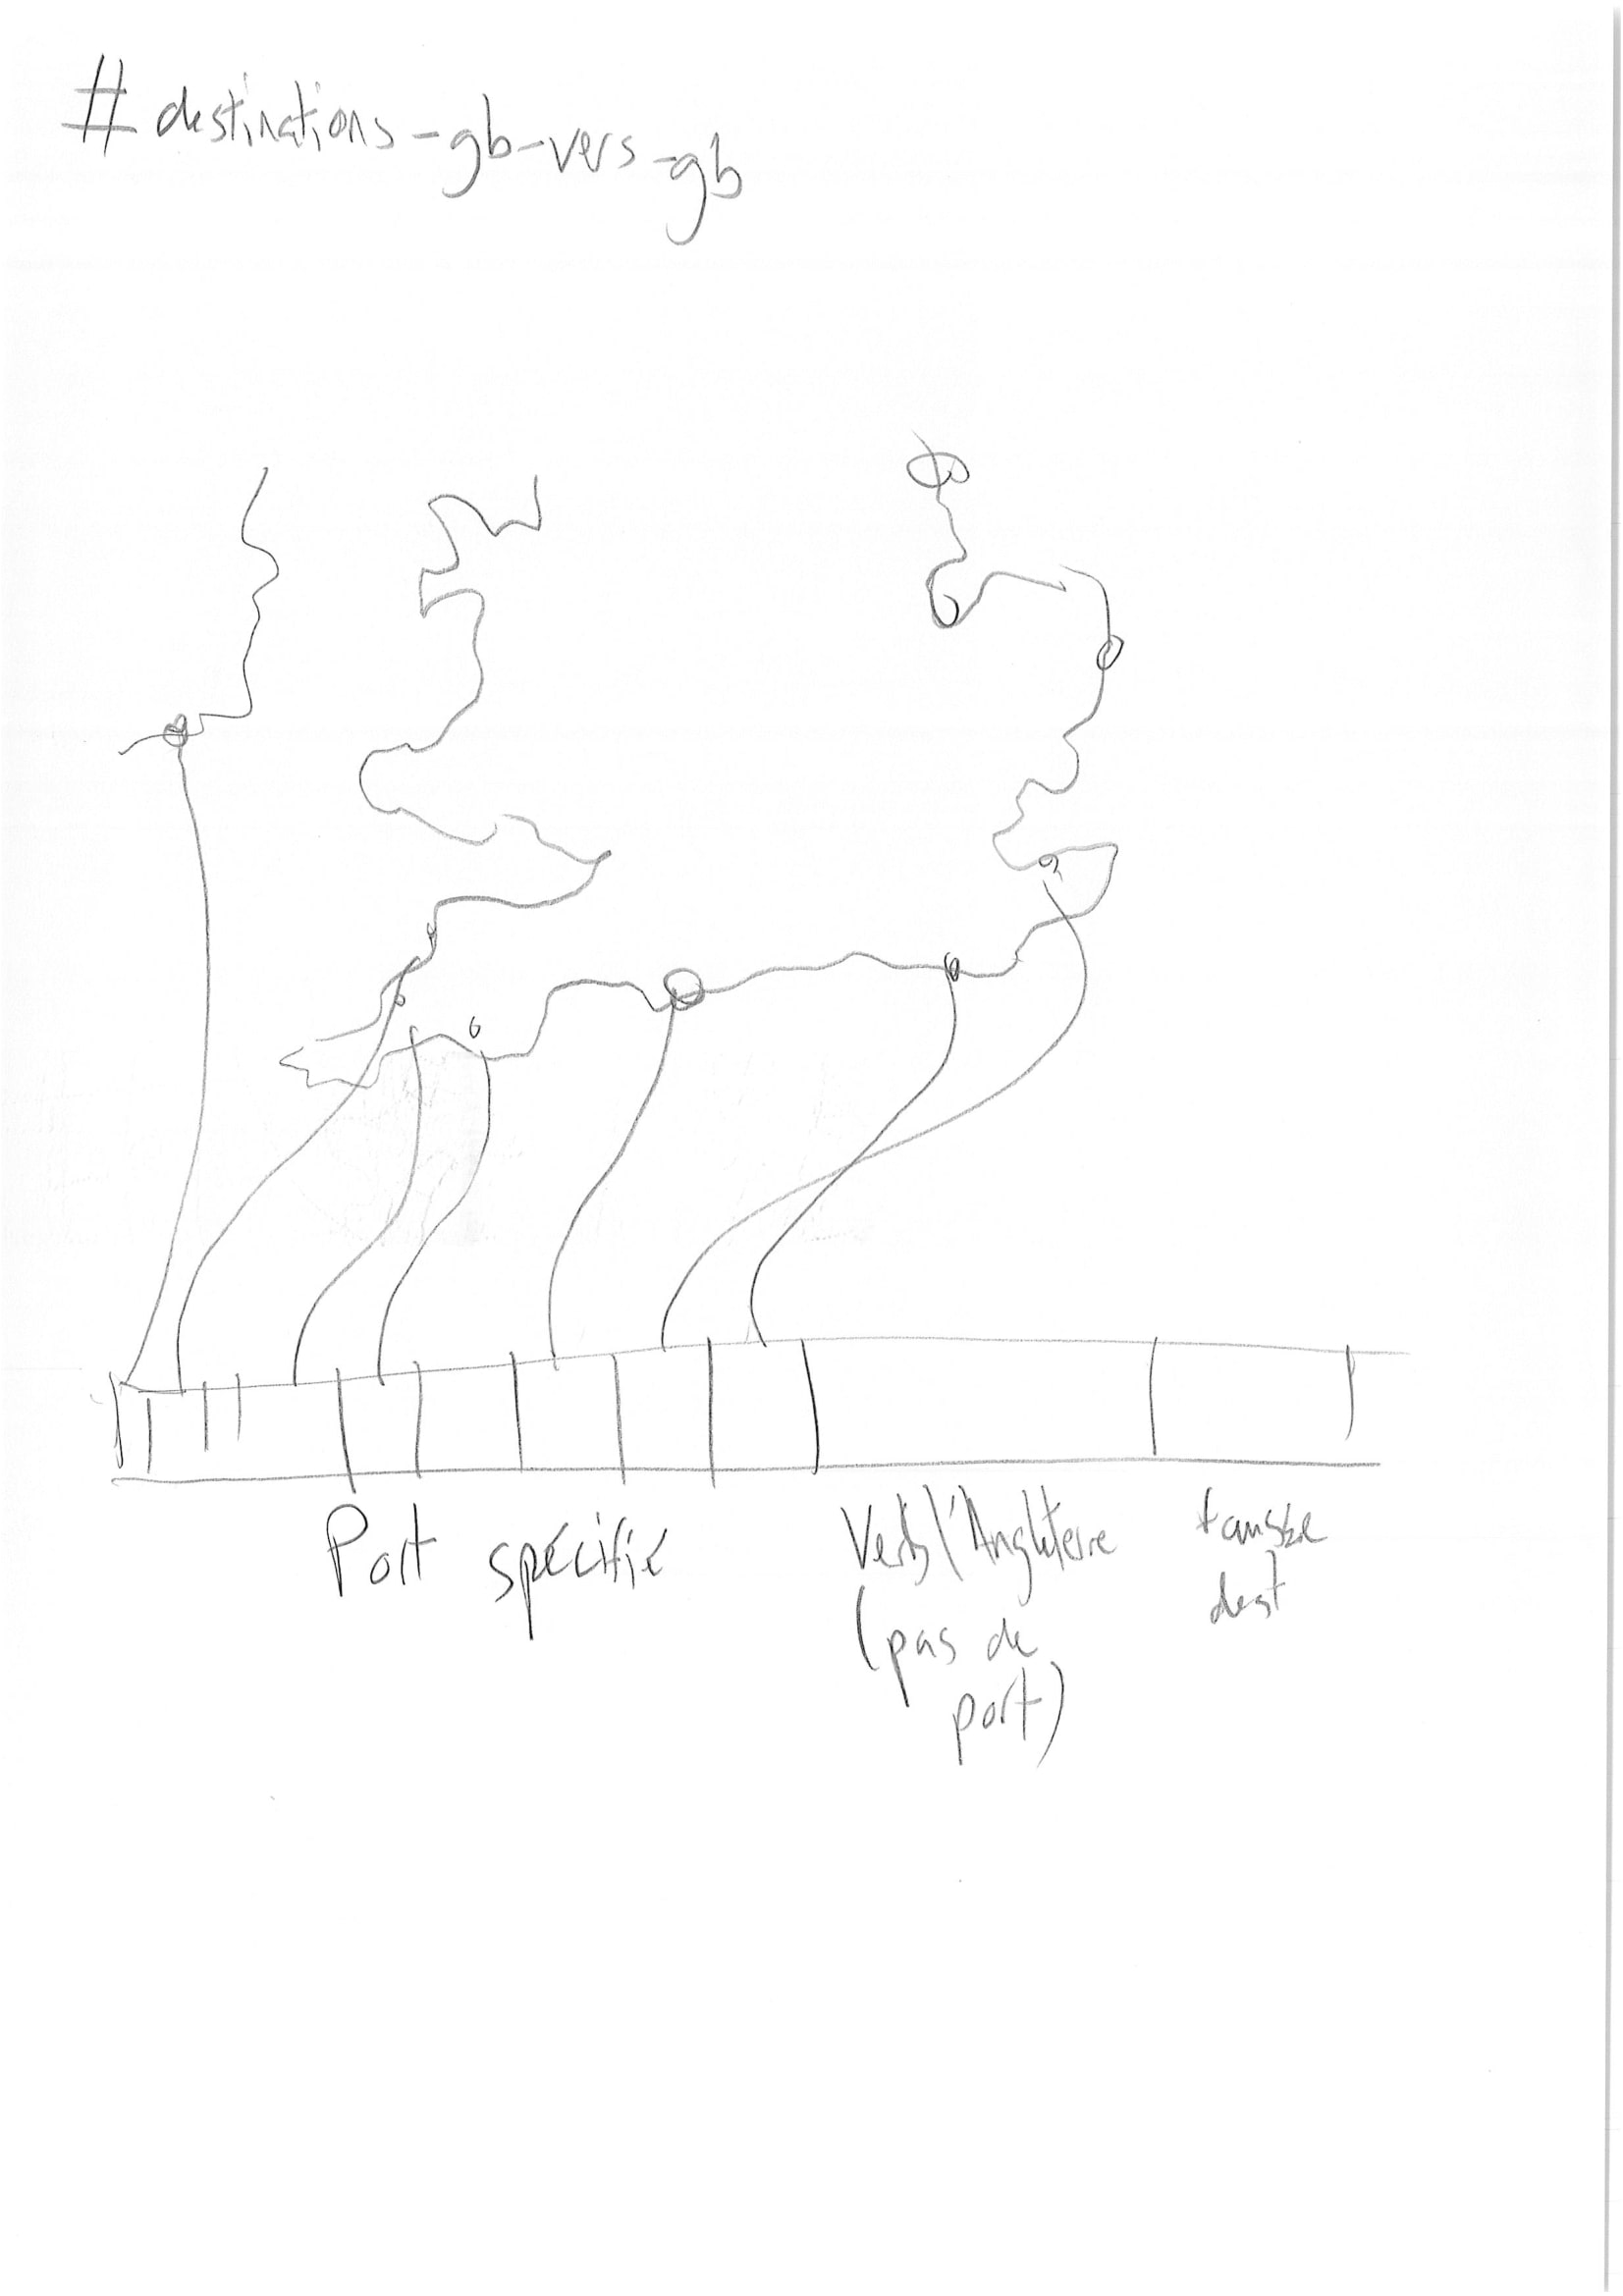 # destinations-gb-vers-gb
Port spécifié
Vers l'Angleterre
(pas de
port)
fausse
dest